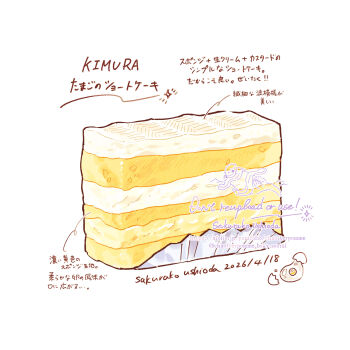 KIMURA
たまごのショートケーキ
スポンジ+生クリーム+カスタードの
シンプルなショートケーキ。
だからこそ良い。ぜいたく!!
繊細な波模様が
美しい
Don't reupload or use!
Sakurako Ushioda
濃い黄色の
スポンジ生地。
柔らかな卵の風味が
口に広がる…。
sakurako ushioda 2026/4/18